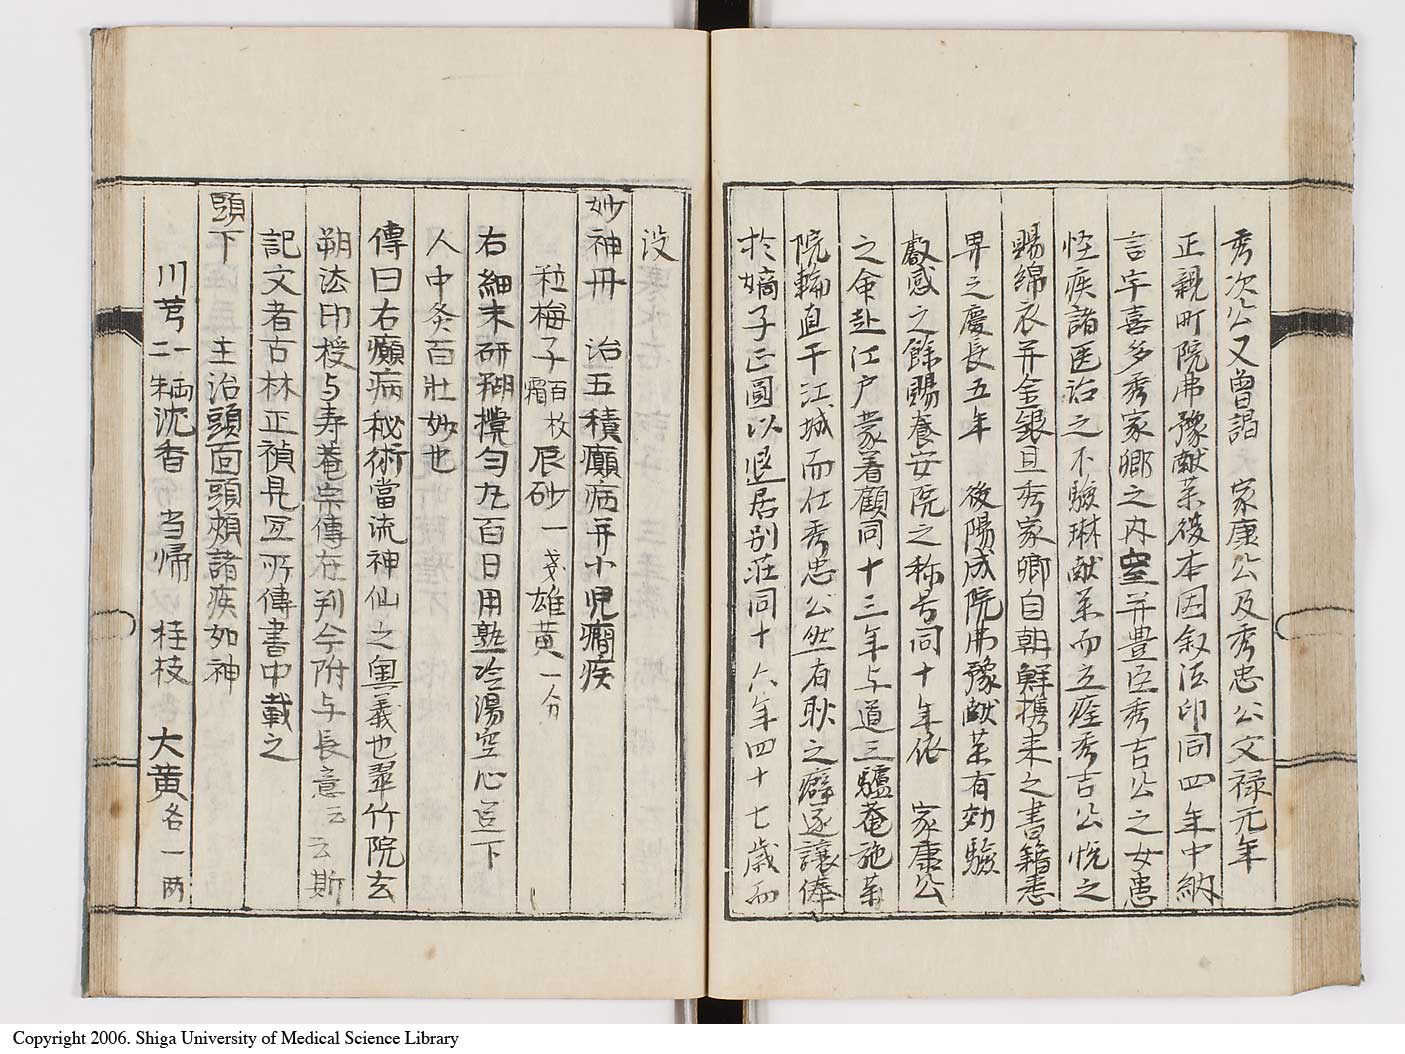 秀次公又曾謁 家康公及秀忠公文禄元年
正親町院弗豫献薬後本因叙法印同四年中納
言宇喜多秀家卿之内室并豊臣秀吉公之女患
怪疾諸医治之不驗琳献薬而立痊秀吉公悦之
賜綿衣并金銀且秀家卿自朝鮮携来之書籍悉
畀之慶長五年 後陽成院弗豫献薬有効驗
叡感之餘賜養安院之称号同十年依 家康公
之命赴江戸蒙着顧同十三年与道三驢菴施薬
院輪直于江城而仕秀忠公然有耿之癖遂讓俸
於嫡子正圓以退居別荘同十六年四十七歳而
没
妙神丹 治五積癲病并小児癇疾
粒梅子百枚霜 辰砂一戔雄黄一分
右細末研糊攪匀九百日用熟冷湯空心送下
人中灸百壮妙也
傳曰右癲病秘術當流神仙之奥義也翠竹院玄
朔法印授与寿菴宗傳在判今附与長意云云斯
記文者古林正禎見宜所傳書中載之
頭下 主治頭面頭頬諸疾如神
川芎二一両朱 沈香 当帰 桂枝 大黄各一两
Copyright 2006. Shiga University of Medical Science Library